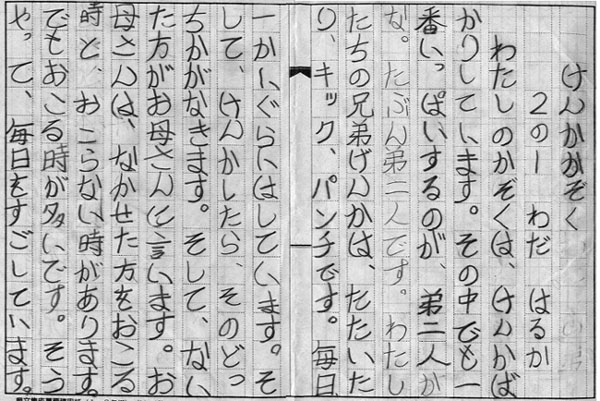 けんかかぞく
2の一 わだ はるか
わたしのかぞくは、けんかば
かりしています。その中でも一
番いっぱいするのが、弟二人か
な。たぶん弟二人です。わたし
たちの兄弟げんかは、たたいた
り、キック、パンチです。毎日
一かいぐらいはしています。そ
して、けんかしたら、そのどっ
ちかがなきます。そして、ない
た方がお母さんに言います。お
母さんは、なかせた方をおこる
時と、おこらない時があります。
でもおこる時が多いです。そう
やって、毎日をすごしています。